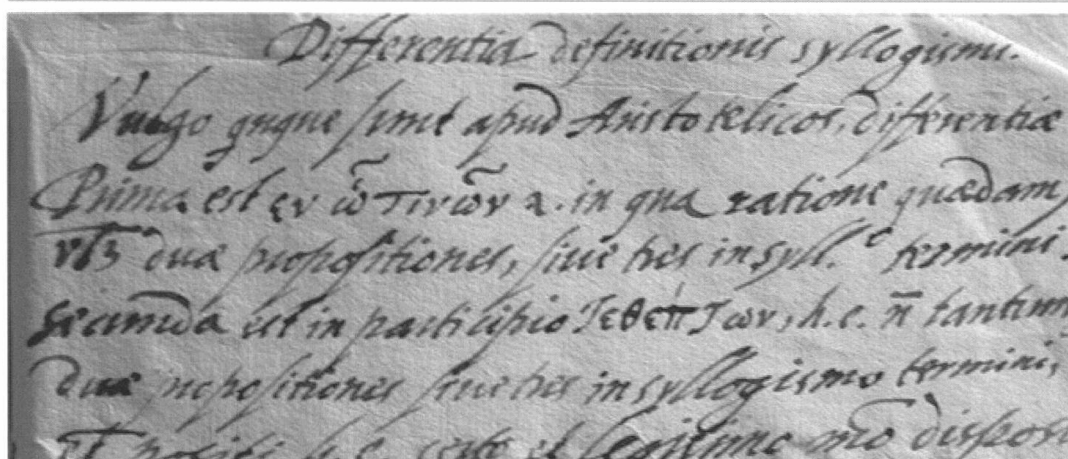 Differentia definitionis syllogismi.
Vulgo quque sunt apud Aristotelicos, differentiæ
Prima est ἐν ᾧ τινῶν 2. in qua ratione quædam
duæ propositiones, siue tres in syll.º termini.
Secunda est in participio τεθέντων, h.e. n̄ tantum
duæ propositiones siue tres in syllogismo termini,
positi h.e. certo et legitimo mo dispos